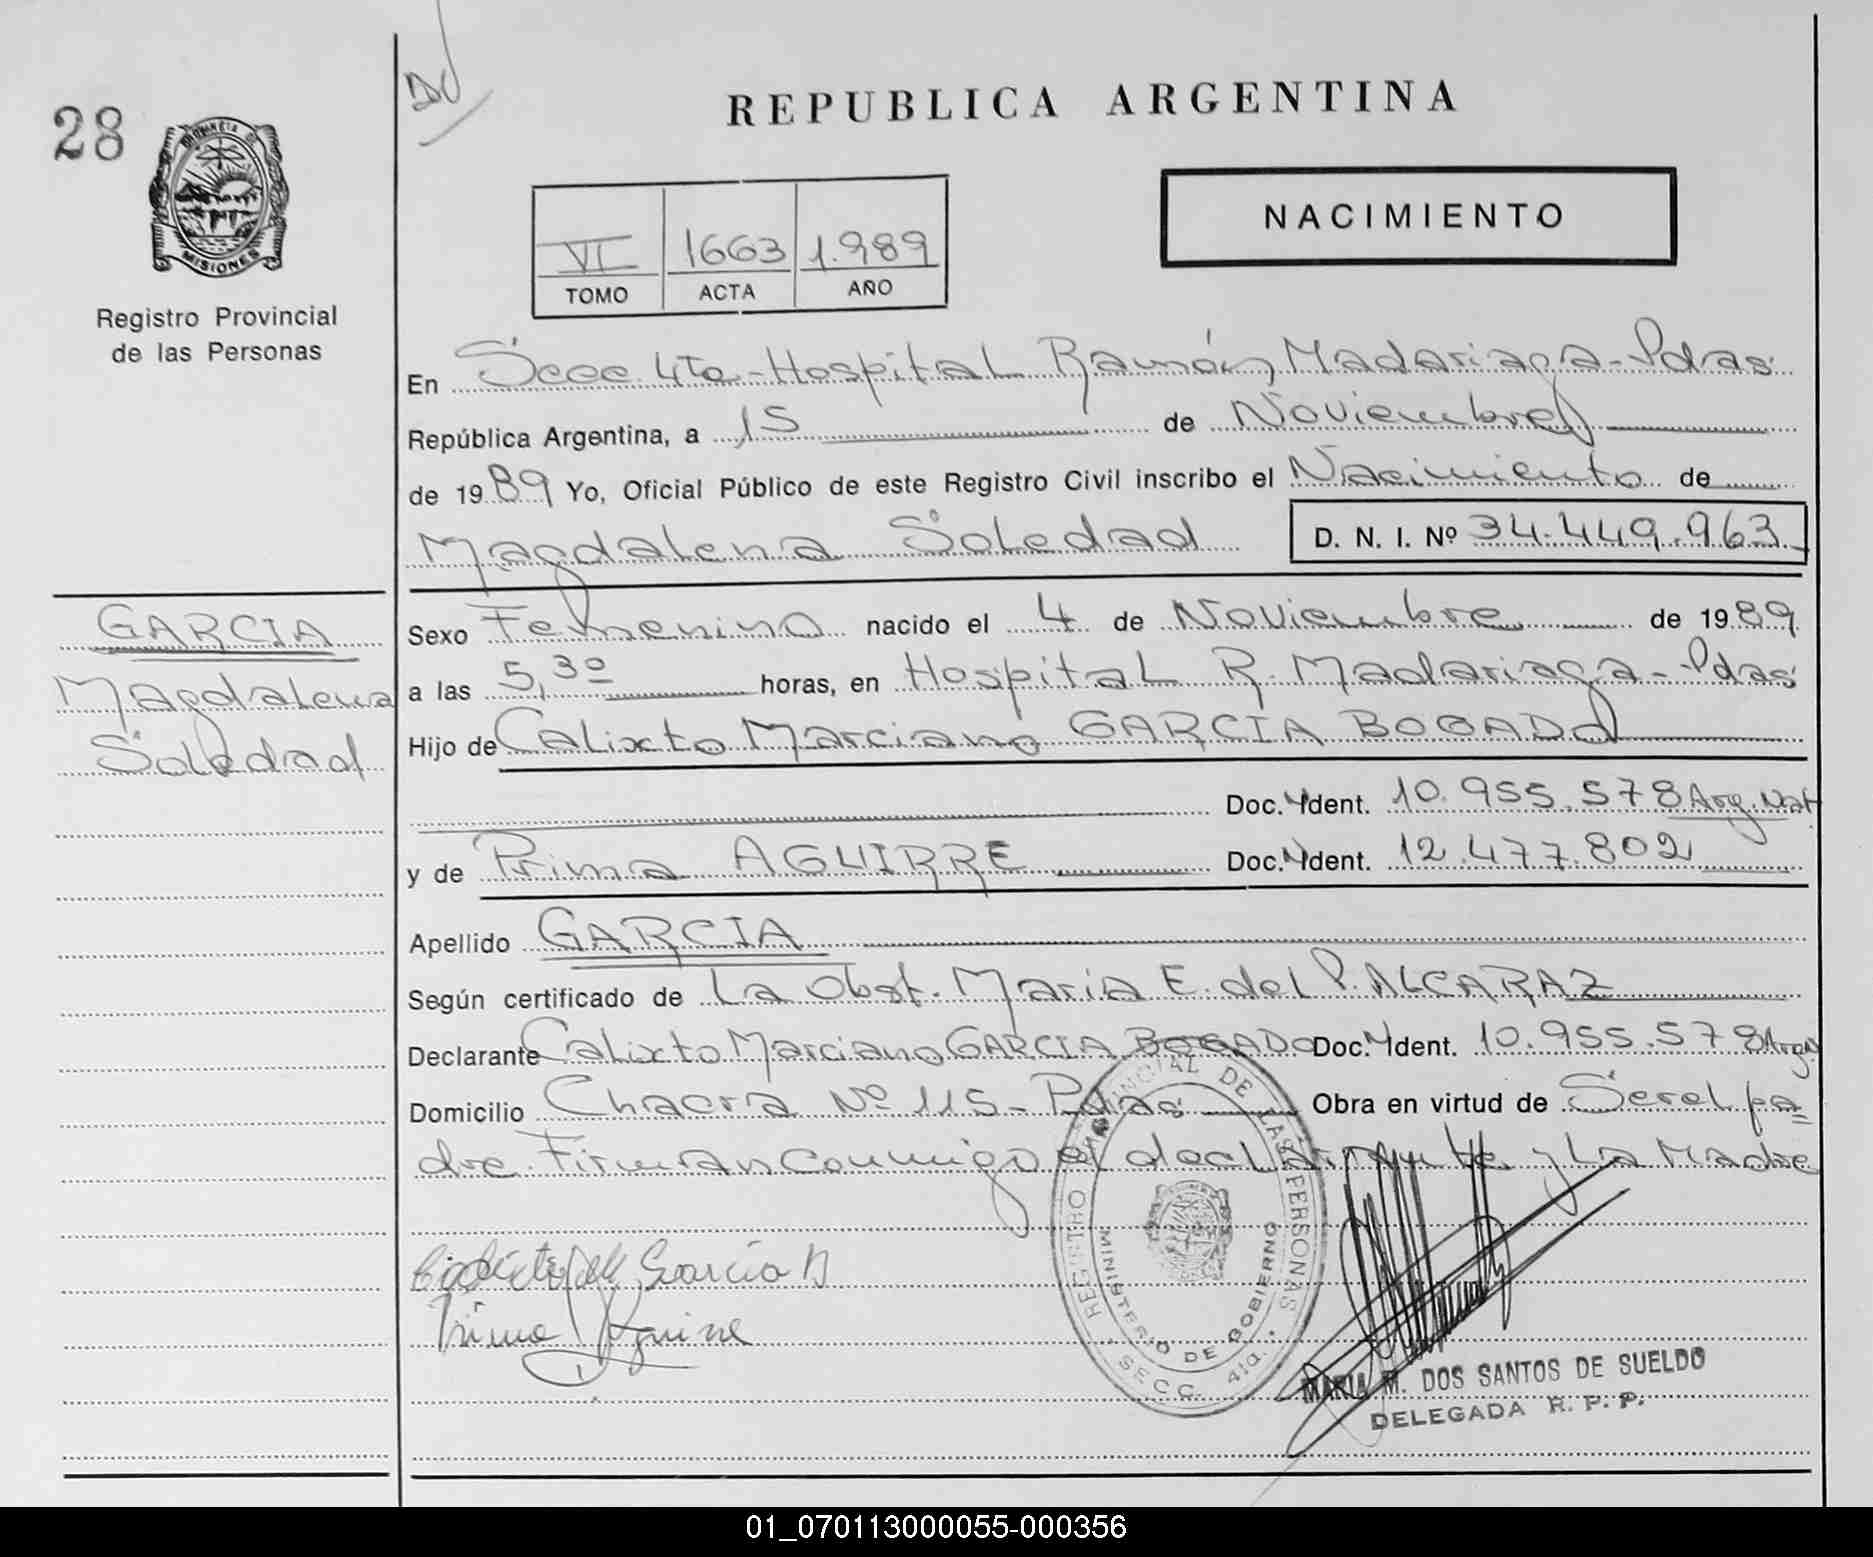 28
DU
REPUBLICA ARGENTINA
PROVINCIA DE
MISIONES
Registro Provincial
de las Personas
NACIMIENTO
VI 1663 1.989
TOMO ACTA AÑO
En Secc. 4ta - Hospital Ramón Madariaga - Pdas
República Argentina, a 15 de Noviembre
de 1989 Yo, Oficial Público de este Registro Civil inscribo el Nacimiento de
Magdalena Soledad D. N. I. Nº 34.449.963
GARCIA
Magdalena
Soledad
Sexo Femenino nacido el 4 de Noviembre de 1989
a las 5,30 horas, en Hospital R. Madariaga - Pdas
Hijo de Calixto Marciano GARCIA BOGADO
Doc. Ydent. 10.955.578 Arg. Nat
y de Prima AGUIRRE Doc. Ydent. 12.477.802
Apellido GARCIA
Según certificado de La Obst. Maria E. del P. ALCARAZ
Declarante Calixto Marciano GARCIA BOGADO Doc. Ydent. 10.955.578 Arg.
Domicilio Chacra Nº 115 - Pdas Obra en virtud de Ser el pa=
dre. Firman conmigo el declarante y La Madre
REGISTRO PROVINCIAL DE LAS PERSONAS
MINISTERIO DE GOBIERNO
SECC. 4ta.
Calixto M García B
Prima Aguirre
MARIA M. DOS SANTOS DE SUELDO
DELEGADA R. P. P.
01_070113000055-000356